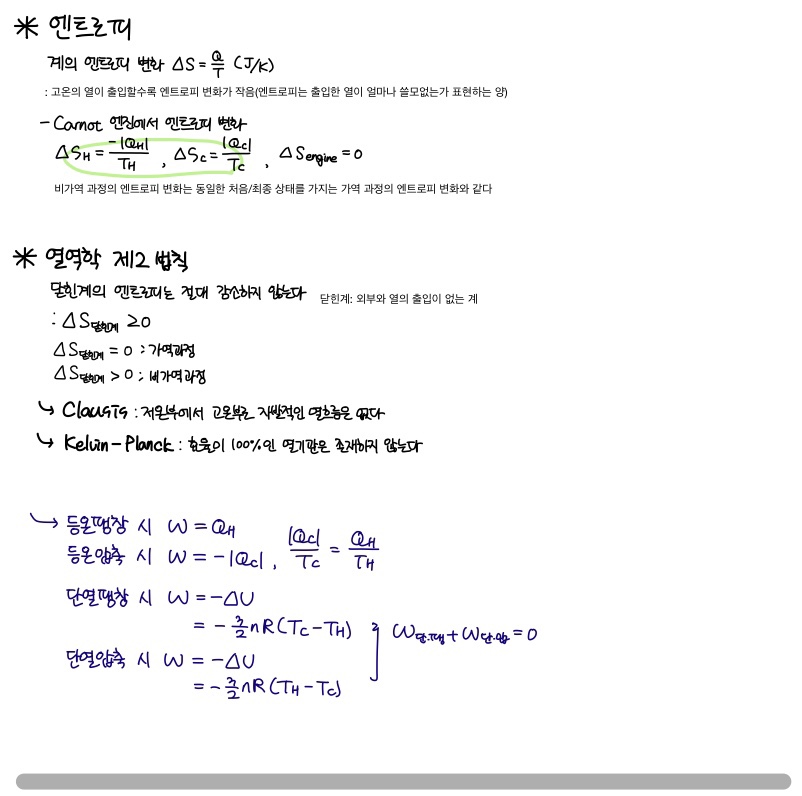 * 엔트로피
계의 엔트로피 변화 ΔS = Q/T (J/K)
: 고온의 열이 출입할수록 엔트로피 변화가 작음(엔트로피는 출입한 열이 얼마나 쓸모없는가 표현하는 양)
- Carnot 엔진에서 엔트로피 변화
ΔS_H = -|Q_H|/T_H , ΔS_C = |Q_C|/T_C , ΔS_engine = 0
비가역 과정의 엔트로피 변화는 동일한 처음/최종 상태를 가지는 가역 과정의 엔트로피 변화와 같다
* 열역학 제2 법칙
닫힌계의 엔트로피는 절대 감소하지 않는다 닫힌계: 외부와 열의 출입이 없는 계
: ΔS_닫힌계 ≥ 0
ΔS_닫힌계 = 0 : 가역과정
ΔS_닫힌계 > 0 ; 비가역과정
↳ Clausis : 저온부에서 고온부로 자발적인 열흐름은 없다
↳ Kelvin-Planck : 효율이 100%인 열기관은 존재하지 않는다
↳ 등온팽창 시 W = Q_H
등온압축 시 W = -|Q_C| , |Q_C|/T_C = Q_H/T_H
단열팽창 시 W = -ΔU
= -3/2 nR(T_C - T_H)
W_단.팽 + W_단.압 = 0
단열압축 시 W = -ΔU
= -3/2 nR(T_H - T_C)